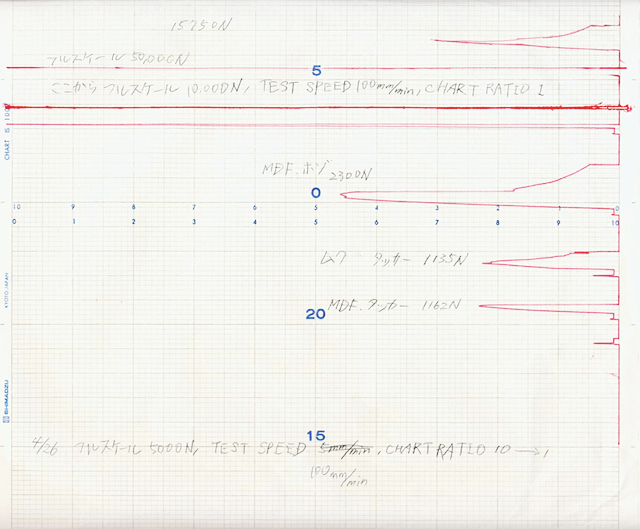 15750N
フルスケール 50,000N
5
ここから フルスケール 10,000N, TEST SPEED 100mm/min, CHART RATIO 1
MDF.ホゾ 2300N
0
10 9 8 7 6 5 4 3 2 1 0
0 1 2 3 4 5 6 7 8 9 10
ムク タッカー 1135N
MDF.タッカー 1162N
20
15
4/26 フルスケール 5000N, TEST SPEED 5mm/min, CHART RATIO 10 → 1
100mm/min
KYOTO JAPAN
SHIMADZU